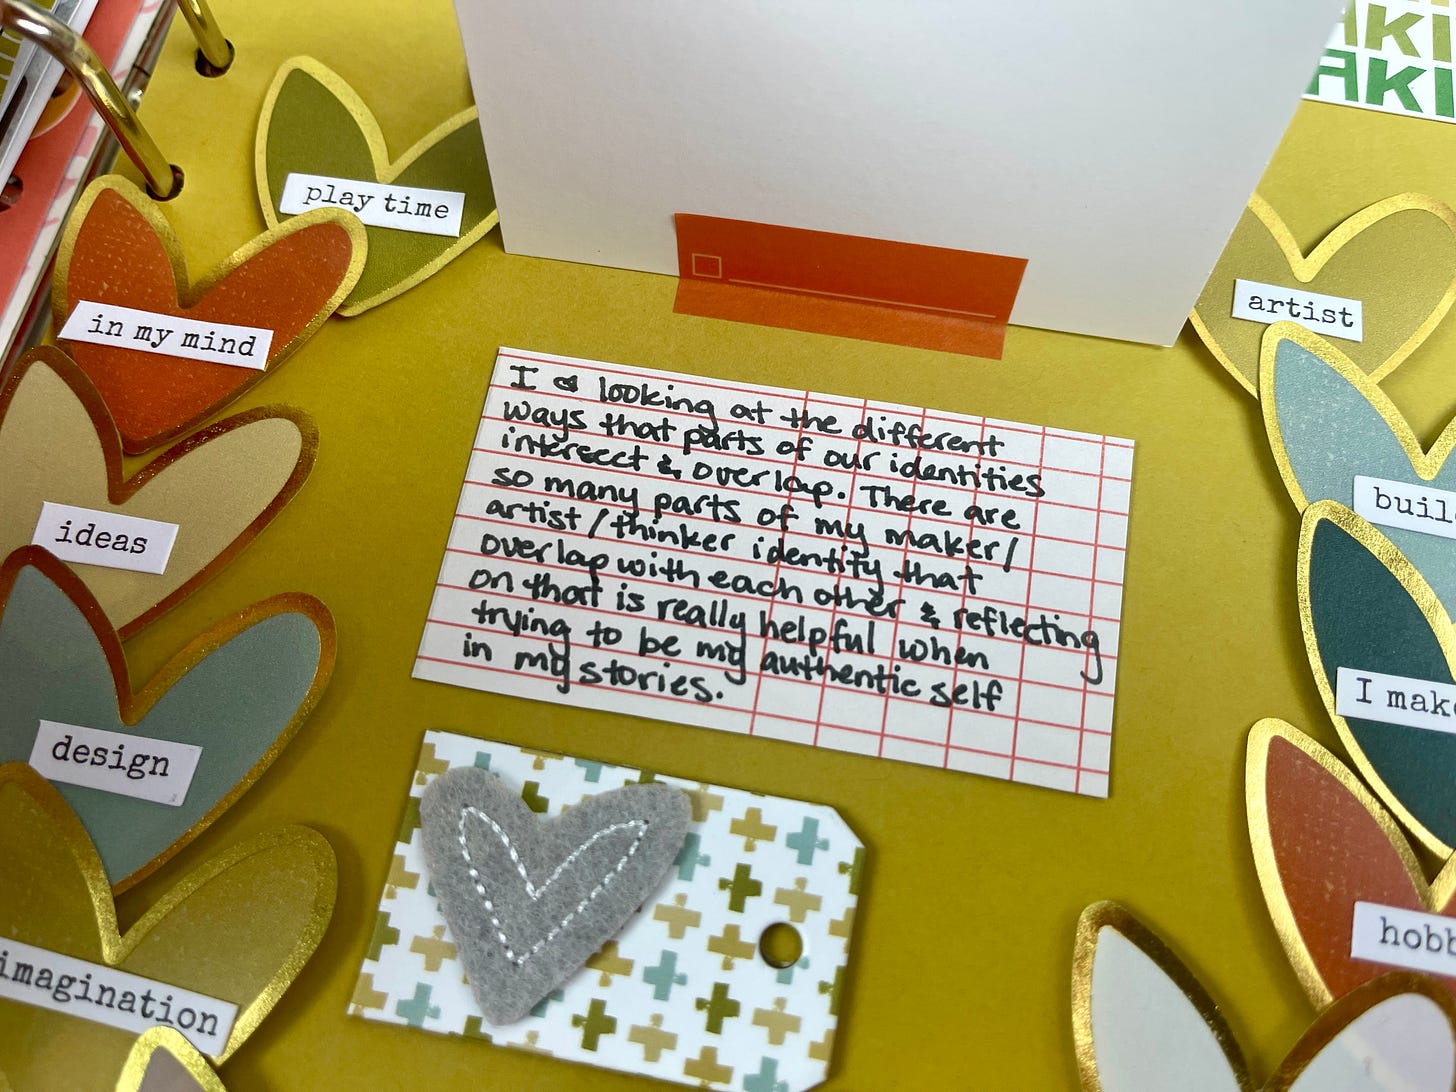 AKI
AKI
play time
in my mind
ideas
design
imagination
I ❤ looking at the different
ways that parts of our identities
intersect & overlap. There are
so many parts of my maker/
artist/thinker identity that
overlap with each other & reflecting
on that is really helpful when
trying to be my authentic self
in my stories.
artist
buil
I make
hobb